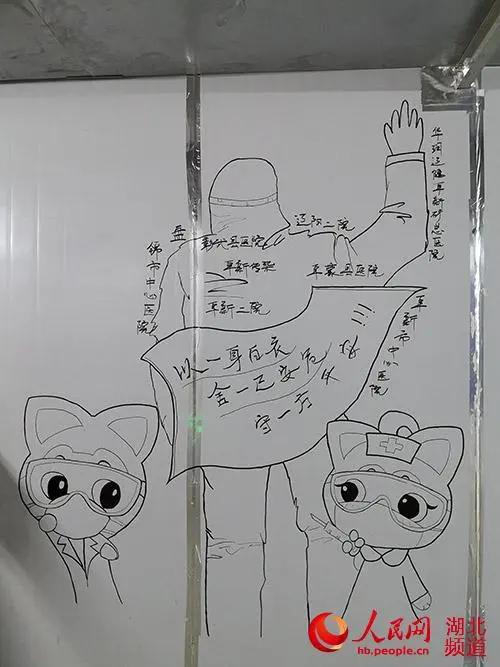 华润辽健阜新矿总医院
辽阳二院
盘
彰武县医院
阜新传染
阜蒙县医院
锦市中心医院
阜新二院
阜新市中心医院
以一身白衣
舍一己安危
守一方
人民网 湖北
hb.people.cn 频道